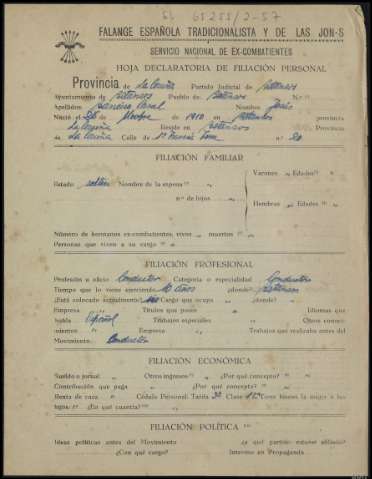 65255/2-57
FALANGE ESPAÑOLA TRADICIONALISTA Y DE LAS JON-S
SERVICIO NACIONAL DE EX-COMBATIENTES
HOJA DECLARATORIA DE FILIACIÓN PERSONAL
Provincia de La Coruña Partido Judicial de Betanzos
Ayuntamiento de Betanzos Pueblo de Betanzos N.º
Apellidos Nombre Jesús
Nació el 26 de Octubre de 1910 en Betanzos provincia
La Coruña Reside en Betanzos Provincia
de La Coruña Calle de n.º 20
FILIACIÓN FAMILIAR
Estado soltero Nombre de la esposa " Varones " Edades "
n.º de hijos " Hembras " Edades "
Número de hermanos ex-combatientes, vivos " muertos "
Personas que viven a su cargo "
FILIACIÓN PROFESIONAL
Profesión u oficio Conductor Categoría o especialidad Conductor
Tiempo que lo viene ejerciendo 10 años ¿dónde? Betanzos
¿Está colocado actualmente? no Cargo que ocupa " ¿dónde? "
Empresa " Títulos que posee " Idiomas que
habla Español Trabajos especiales " Otros conoci-
mientos " Empresa " Trabajos que realizaba antes del
Movimiento Conductor
FILIACIÓN ECONÓMICA
Sueldo o jornal " Otros ingresos " ¿Por qué concepto? "
Contribución que paga " ¿Por qué concepto? "
Renta de casa " Cédula Personal: Tarifa 3ª Clase ¿Con tienes la mujer o los
hijos? " ¿En qué cuantía? "
FILIACIÓN POLÍTICA
Ideas políticas antes del Movimiento " ¿A qué partido estuvo afiliado?
¿Con qué cargo? Intervino en Propaganda